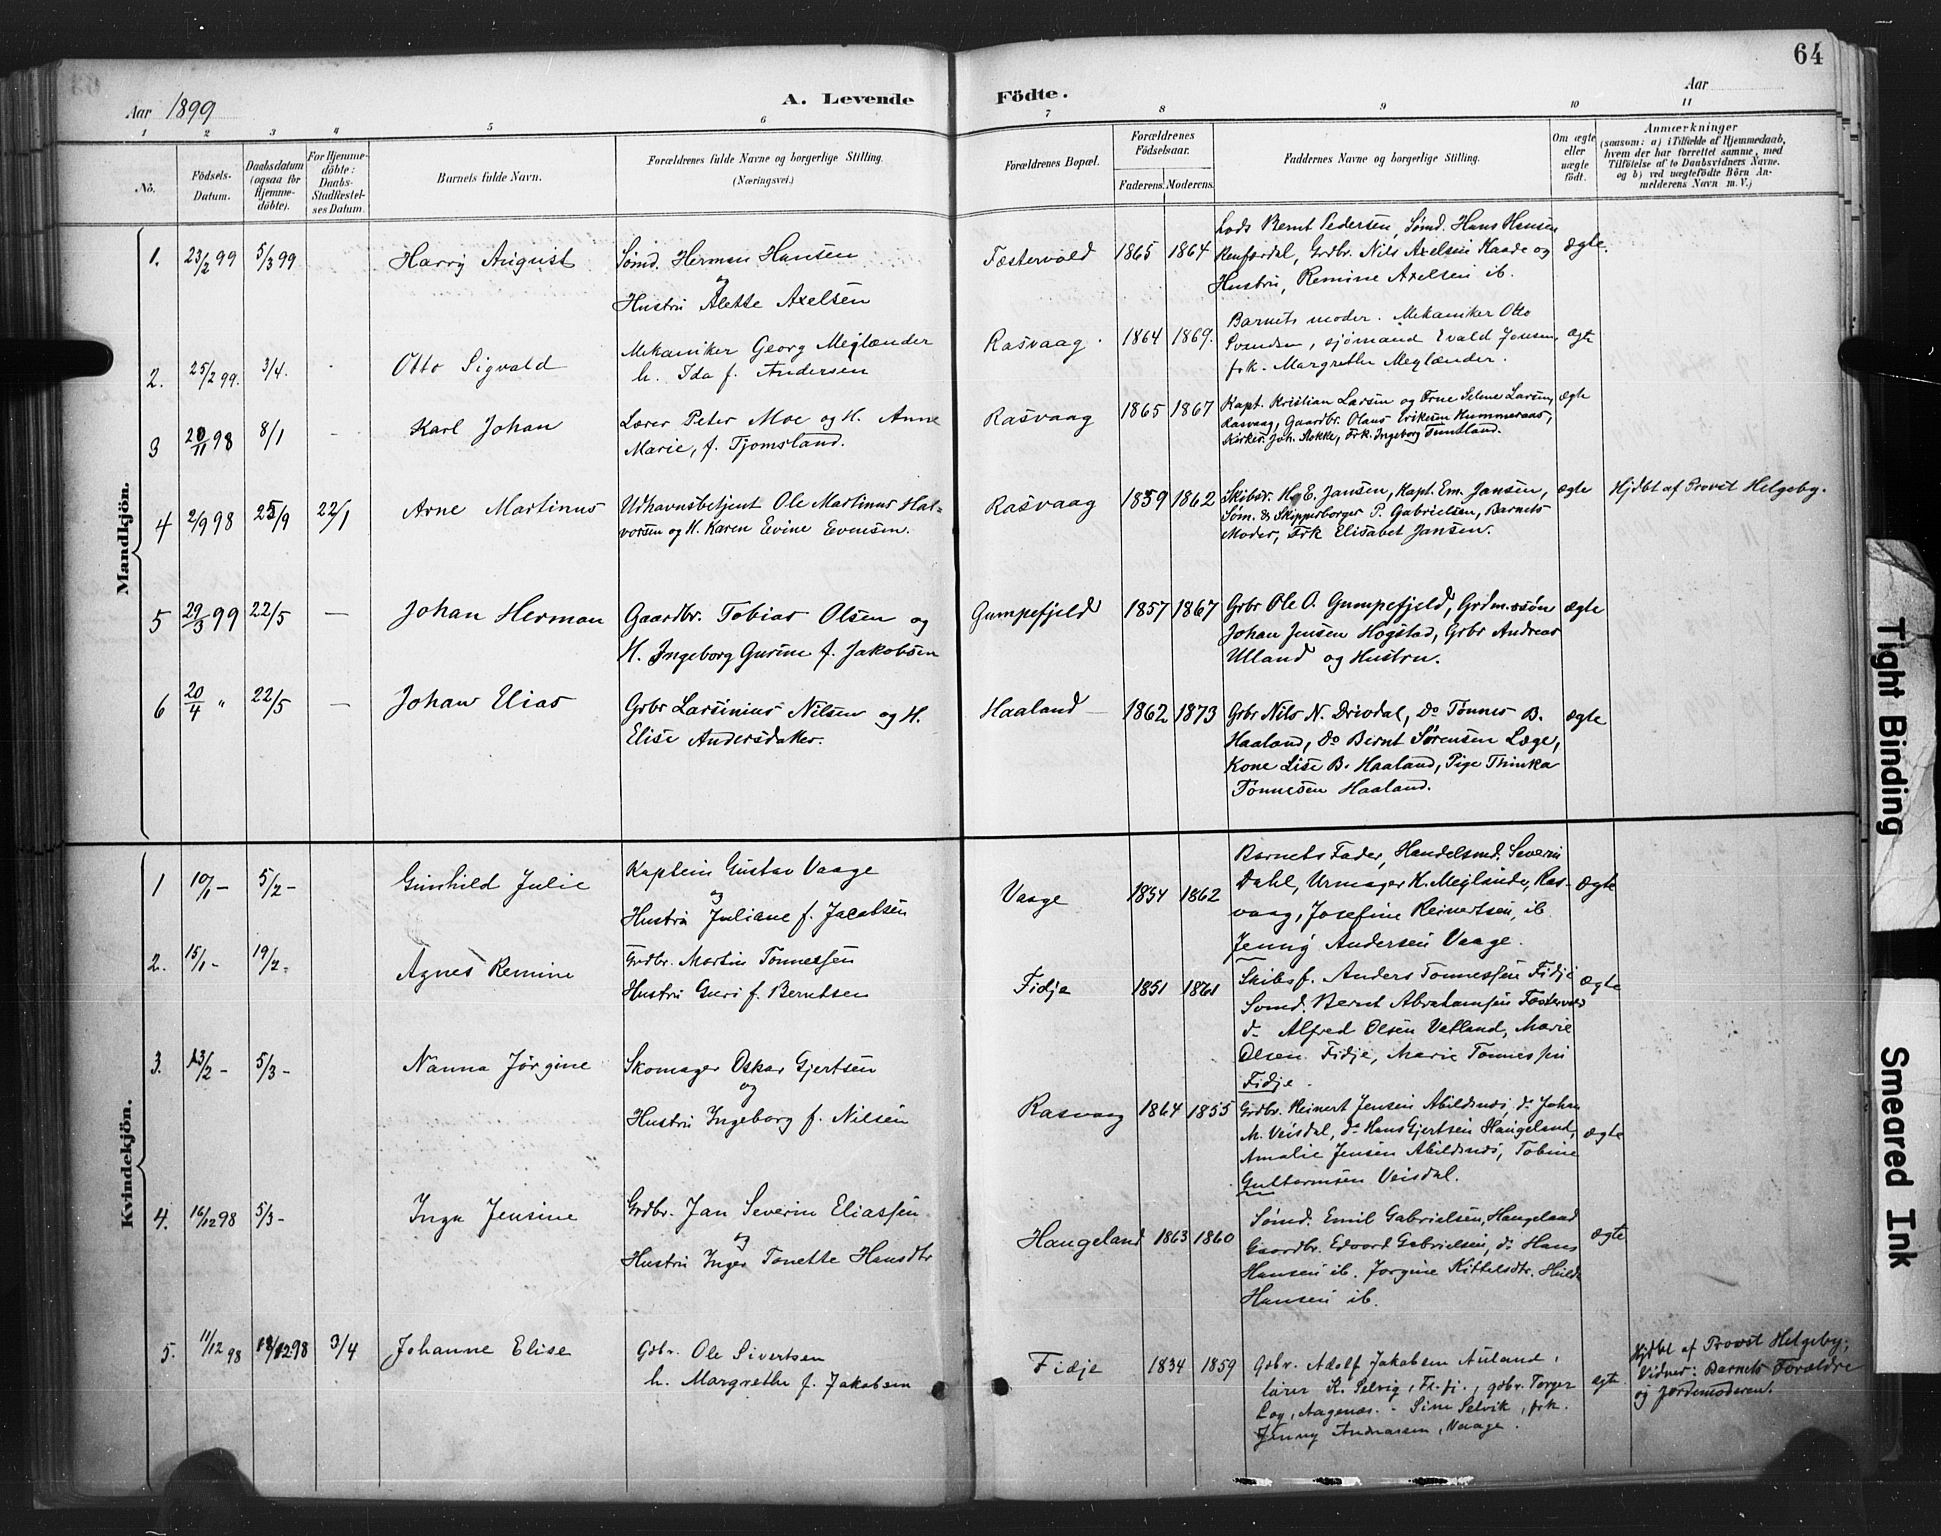 64
Aar 1899
A. Levende
Födte.
Aar
1 2 3 4 5 6 7 8 9 10 11
No.
Födsels-
Datum.
Daabsdatum
(ogsaa for
Hjemme-
döbte).
For Hjemme-
döbte:
Daabs-
Stadfæstel-
ses Datum.
Barnets fulde Navn.
Forældrenes fulde Navne og borgerlige Stilling.
(Næringsvei.)
Forældrenes Bopæl.
Forældrenes
Födselsaar.
Faderens. Moderens.
Faddernes Navne og borgerlige Stilling.
Om ægte
eller
uægte
födt.
Anmærkninger
(saasom: a) i Tilfælde af Hjemmedaab,
hvem der har forrettet samme, med
Tilföielse af to Daabsvidners Navne.
og b) ved uægtefödte Börn An-
melderens Navn m. V.)
Mandkjön.
1. 23/2 99 5/3 99 Harry August
Sømd. Herman Hansen
og
Hustru Alette Axelsen
Fæstervold 1865 1864
Lods Bernt Pedersen, Sømd. Hans Hansen
Grdbr. Nils Axelsen Kaade og
Hustru, Remine Axelsen ib.
ægte.
2. 25/2 99. 3/4. - Otto Sigvald
Mekaniker Georg Meglænder
h. Ida f. Andersen
Rasvaag. 1864 1869.
Barnets moder. Mekaniker Otto
Svendsen, sjömand Evald Jensen,
frk. Margrethe Meglænder.
ægte
3 20/11 98 8/1 - Karl Johan
Lærer Peter Moe og H. Anne
Marie, f. Tjomsland.
Rasvaag 1865 1867
Kapt. Kristian Larsen og Frue Selene Larsen,
Rasvaag, Gaardbr. Olaus Eriksen Hummeraas,
Kirkes. Joh. Stokke, Frk. Ingeborg Tuntland.
ægte
4 2/9 98 25/9 22/1 Arne Martinus
Udhavnsbetjent Ole Martinus Hal-
vorsen og H. Karen Evine Evensen.
Rasvaag 1859 1862
Skibsr. H. E. Jansen, Kapt. Em. Jansen,
Søm. & Skipperborger P. Gabrielsen, Barnets
Moder, Frk Elisabet Jansen.
ægte
Hjdbt af Provst Helgeby.
5 29/3 99 22/5 — Johan Herman
Gaardbr. Tobias Olsen og
H. Ingeborg Gurine f. Jakobsen
Gumpefjeld 1857 1867
Grbr Ole O. Gumpefjeld, Grdm.ssön
Johan Jensen Hogstad, Grbr Andreas
Ulland og Hustru.
ægte
6 20/4 " 22/5 — Johan Elias
Grbr Larsinius Nilsen og H.
Elise Andersdatter.
Haaland — 1862 1873
Grbr Nils N. Drivdal, Do Tønnes B.
Haaland, Do Bernt Sørensen Læge,
Kone Lise B. Haaland, Pige Thinka
Tönnesen Haaland.
ægte
Kvindekjön.
1 10/1 - 5/2 - Gunhild Julie
Kaptein Gustav Vaage
og
Hustru Juliane f. Jacobsen
Vaage 1854 1862
Barnets Fader, Handelsmd. Severin
Dahl, Urmager K. Meglænde, Ras-
vaag, Josefine Reinertsen, ib
Jenny Andersen Vaage.
ægte
2. 15/1 - 19/2 - Agnes Remine
Grdbr. Martin Tönnessen
Hustru Guri f. Berntsen
Fidje 1851 1861
Skibsf. Anders Tönnessen Fidje
Sømd. Bernt Abrahamsen Fæstervold
do Alfred Olsen Vatland, Marie
Olsen Fidje, Marie Tonnessen
Fidje.
ægte
3. 13/2 - 5/3 - Nanna Jørgine
Skomager Oskar Gjertsen
og
Hustru Ingeborg f. Nilsen
Rasvaag 1864 1855
Grdbr. Reinert Jensen Abildsnes, do Johan
M. Veisdal, do Hans Gjertsen Haugeland,
Amalie Jensen Abildsnes, Tobine
Guttormsen Veisdal.
ægte
4. 16/12 98 5/3 - Inga Jensine
Grdbr. Jan Severin Eliassen
og
Hustru Inger Tonette Hansdtr
Haugeland 1863 1860
Sømd. Emil Gabrielsen, Haugeland
Gaardbr. Edvard Gabrielsen, do Hans
Hansen ib. Jorgine Kittelsdtr. Hulda
Hansen ib.
ægte
5. 11/12 98 18/12 98 3/4 Johanne Elise
Gdbr. Ole Sivertsen
h. Margrethe f. Jakobsen
Fidje 1834 1859
Gdbr. Adolf Jakobsen Auland,
lærer K. Selvig, gdbr. Torger
Log, Aagenæs. - Sine Selvik, frk.
Jenny Andreassen, Vaage.
ægte
Hjdbt af Provst Helgeby;
Vidner: Barnets Forældre
og Jordemoderen.
Tight Binding
Smeared Ink